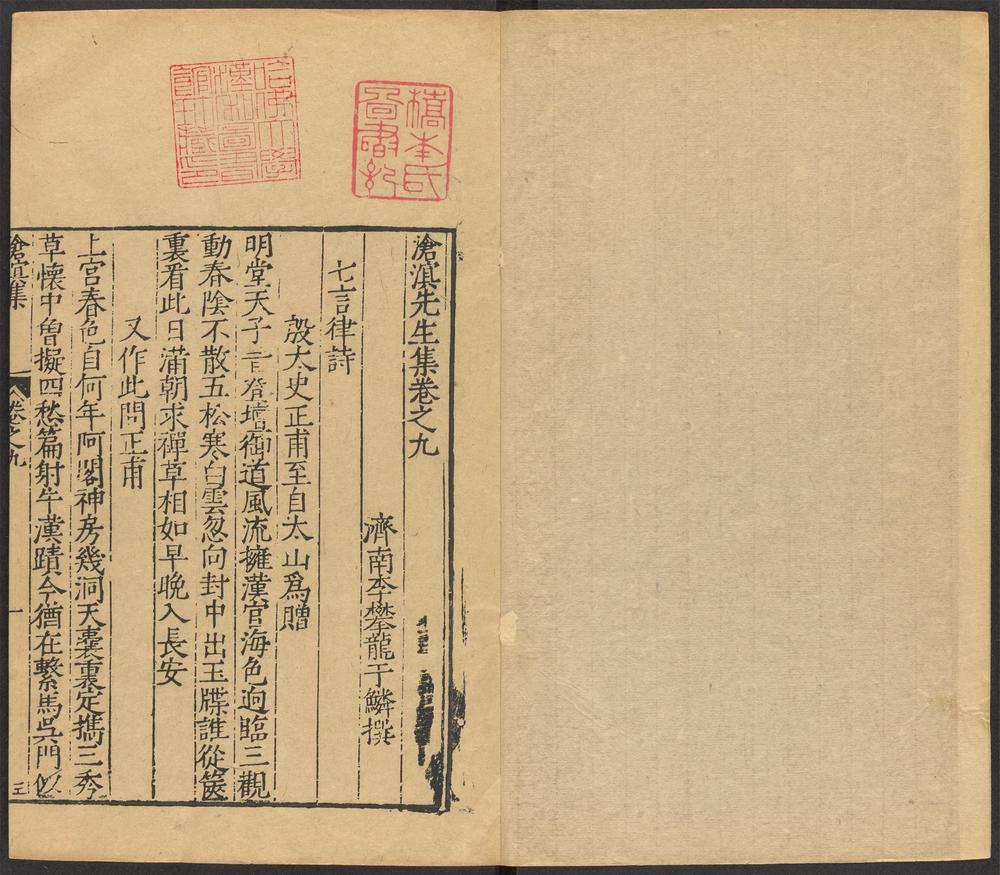 滄溟先生集卷之九
濟南李攀龍于鱗撰
七言律詩
殷太史正甫至自太山爲贈
明堂天子昔登壇御道風流擁漢官海色逈臨三觀
動春陰不散五松寒白雲忽向封中出玉牒誰從篋
裏看此日滿朝求禪草相如早晚入長安
又作此問正甫
上宮春色自何年阿閣神房幾洞天囊裏定攜三秀
草懷中曾擬四愁篇射牛漢蹟今猶在繫馬吳門似
滄溟集
卷之九
一
橋本氏
圖書記
哈佛大學
漢和圖書
館珍藏印